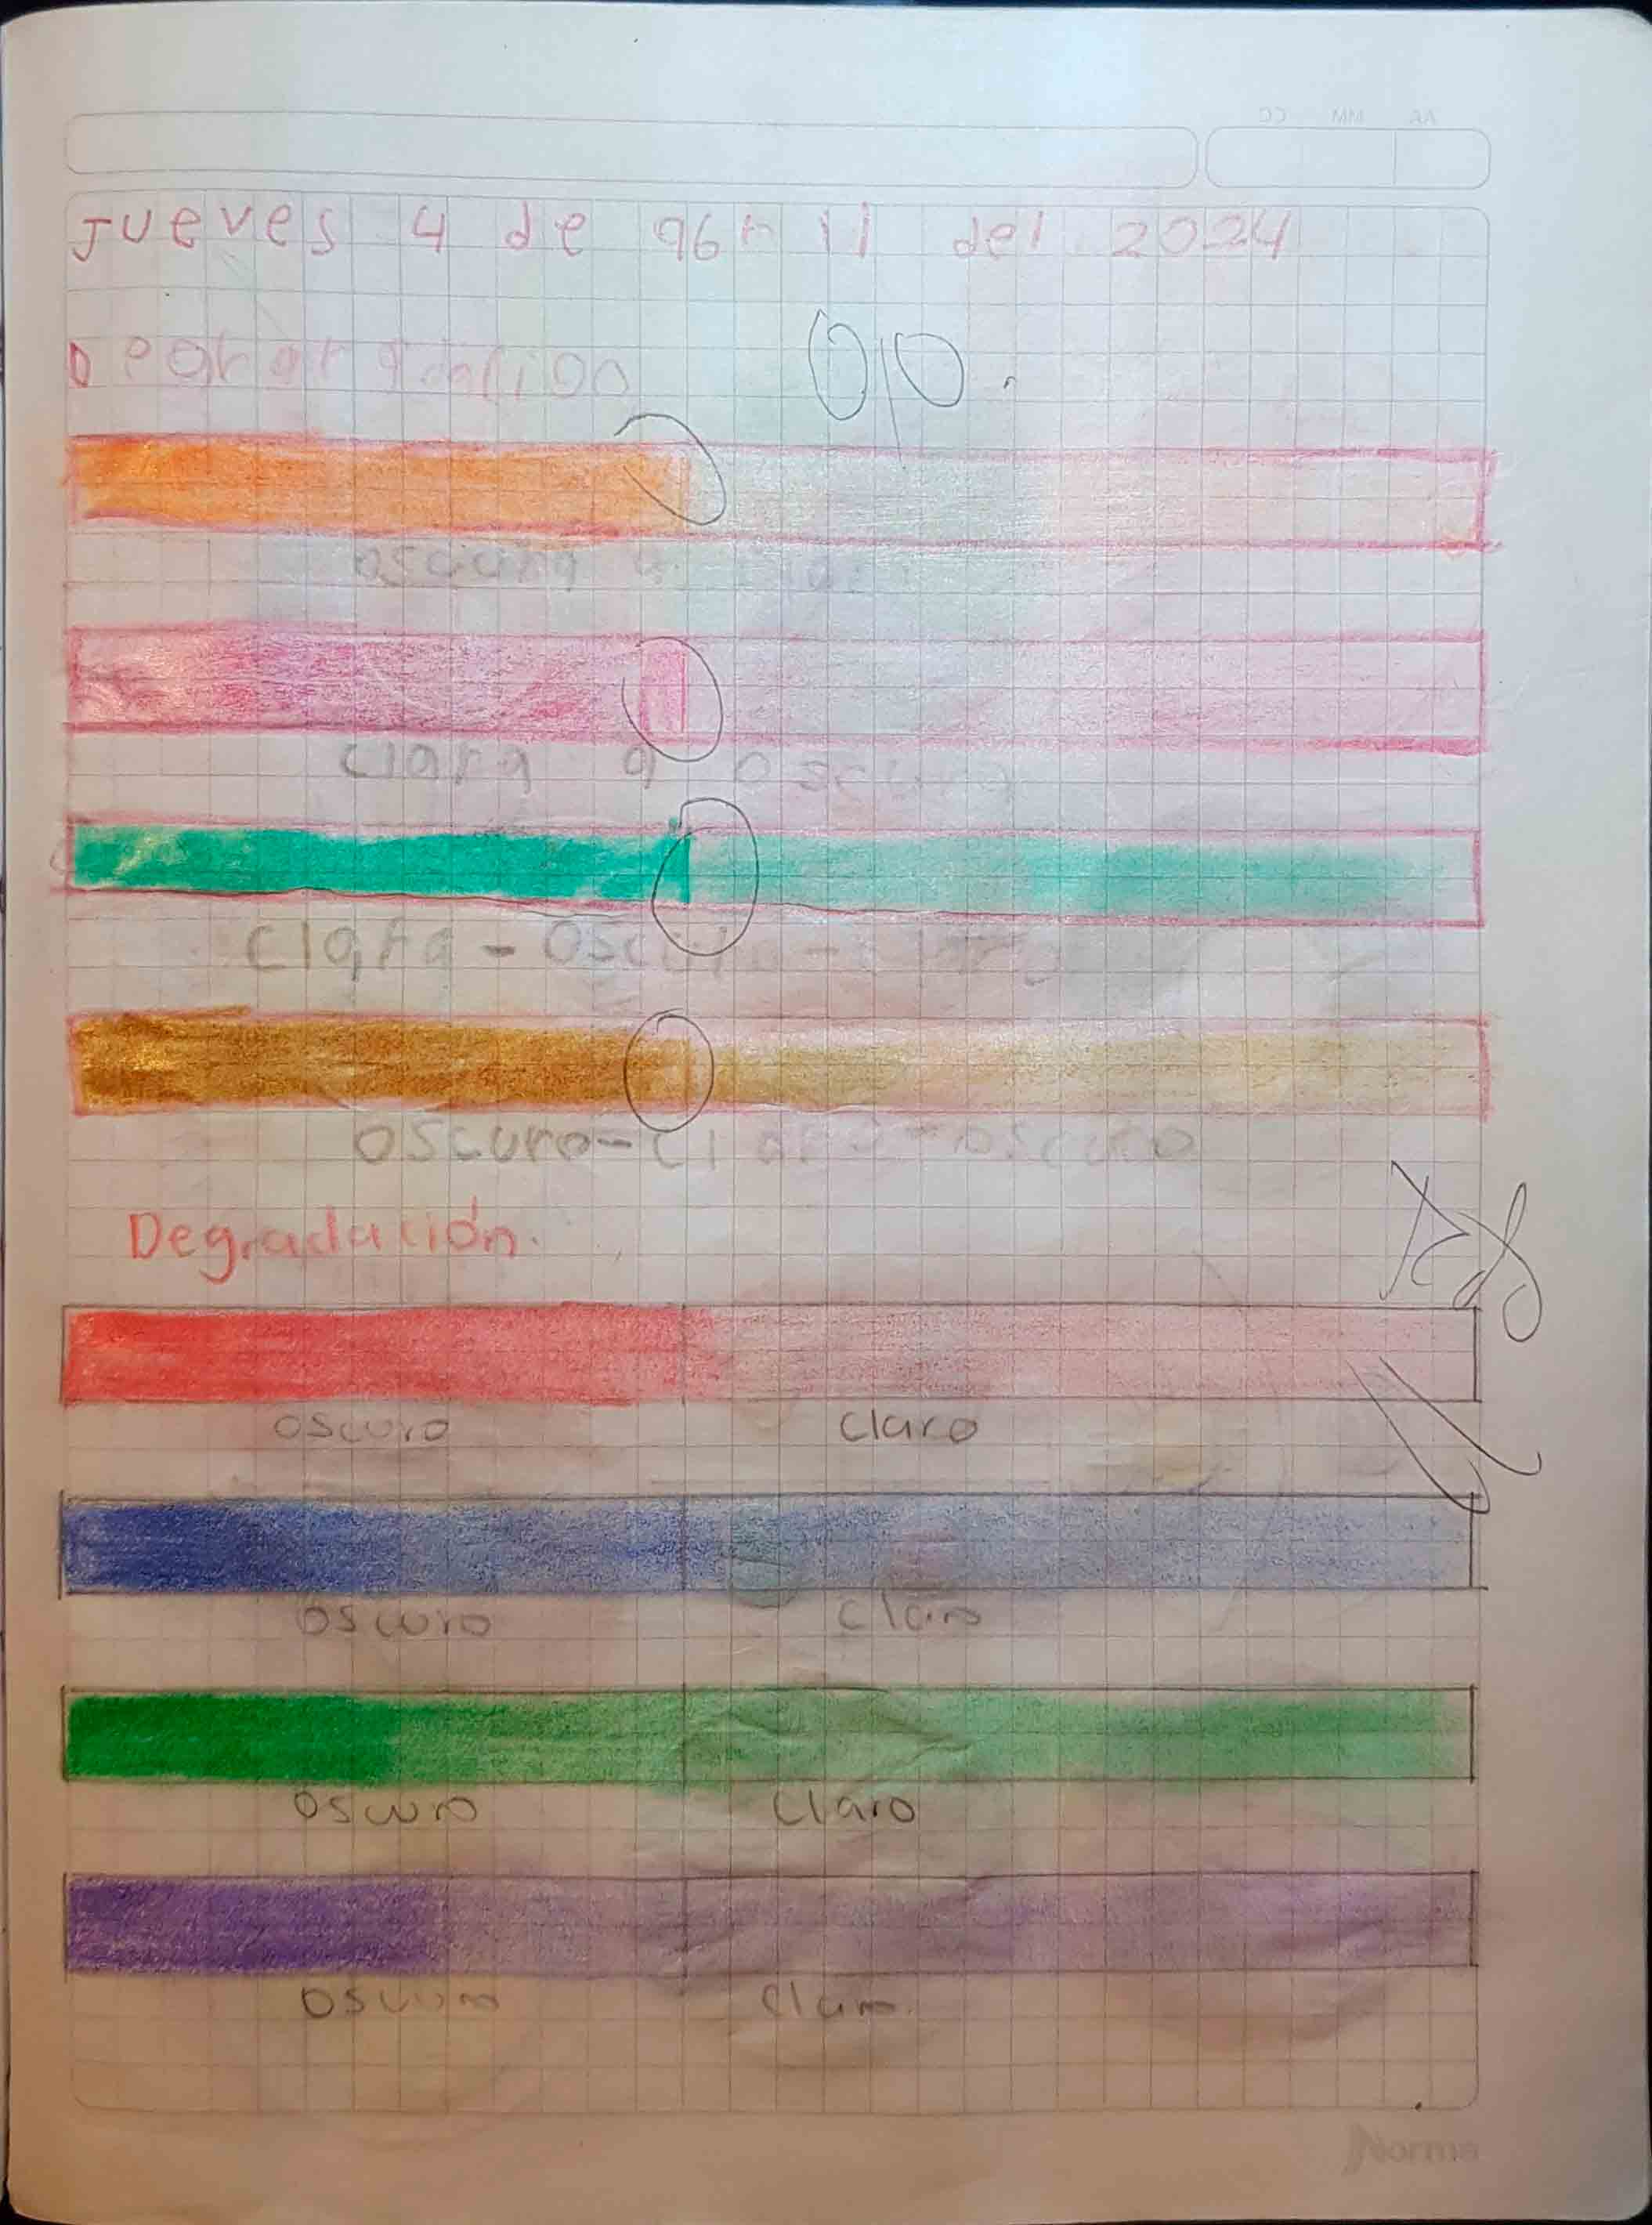 AA MM CC
Jueves 4 de abril del 2024
OJO.
oscura a
clara a oscura
clara - oscuro - claro
oscuro - claro - oscuro
Degradación.
oscuro claro
oscuro claro
oscuro claro
oscuro claro.
Norma